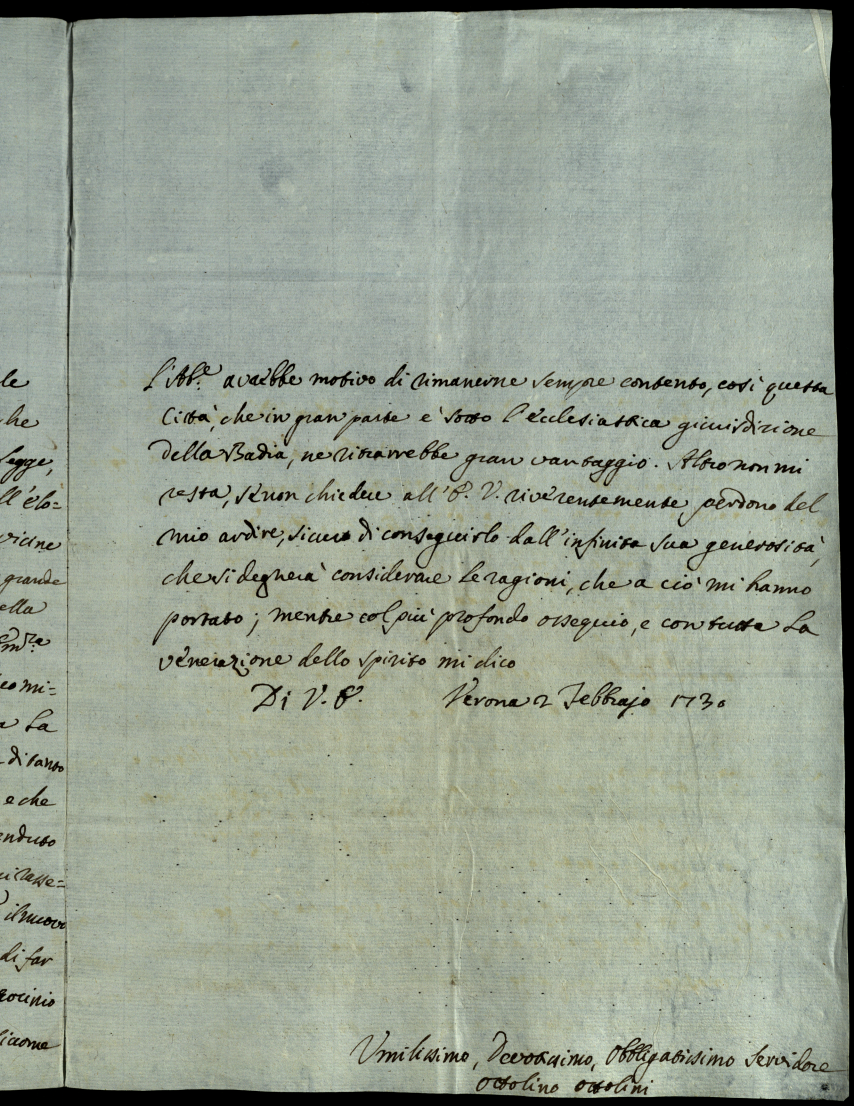 le
he
Legge,
ll'élo=
vicine
grande
ella
eo mi=
a La
di tanto
e che
enduto
il nuovo
di far
rocinio
l'Ab.e avrebbe motivo di rimanerne sempre contento, così questa
Città, che in gran parte è sotto l'ecclesiastica giurisdizione
della Badia, ne ritrarrebbe gran vantaggio. Altro non mi
resta, se non chiedere all'E. V. riverentemente perdono del
mio ardire, sicuro di conseguirlo dall'infinita sua generosità,
che si degnerà considerare le ragioni, che a ciò mi hanno
portato; mentre col più profondo ossequio, e con tutta La
venerazione dello spirito mi dico
Di V. E. Verona 2 Febbrajo 1730
Umilissimo, Devotissimo, Obbligatissimo Servidore
Ottolino Ottolini